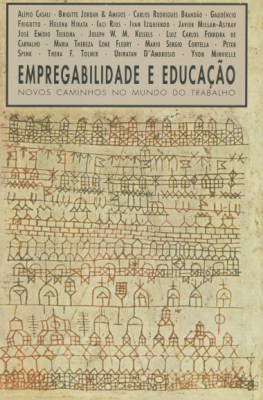 Alípio Casali - Brigitte Jordan & Amigos - Carlos Rodrigues Brandão - Gaudêncio
Frigotto - Helena Hirata - Iaci Rios - Ivan Izquierdo - Javier Millan-Astray
José Emídio Teixeira - Joseph W. M. Kessels - Luiz Carlos Ferreira de
Carvalho - Maria Thereza Leme Fleury - Mario Sergio Cortella - Peter
Spink - Thera F. Tolner - Ubiratan D'Ambrosio - Yvon Minvielle
EMPREGABILIDADE E EDUCAÇÃO
NOVOS CAMINHOS NO MUNDO DO TRABALHO